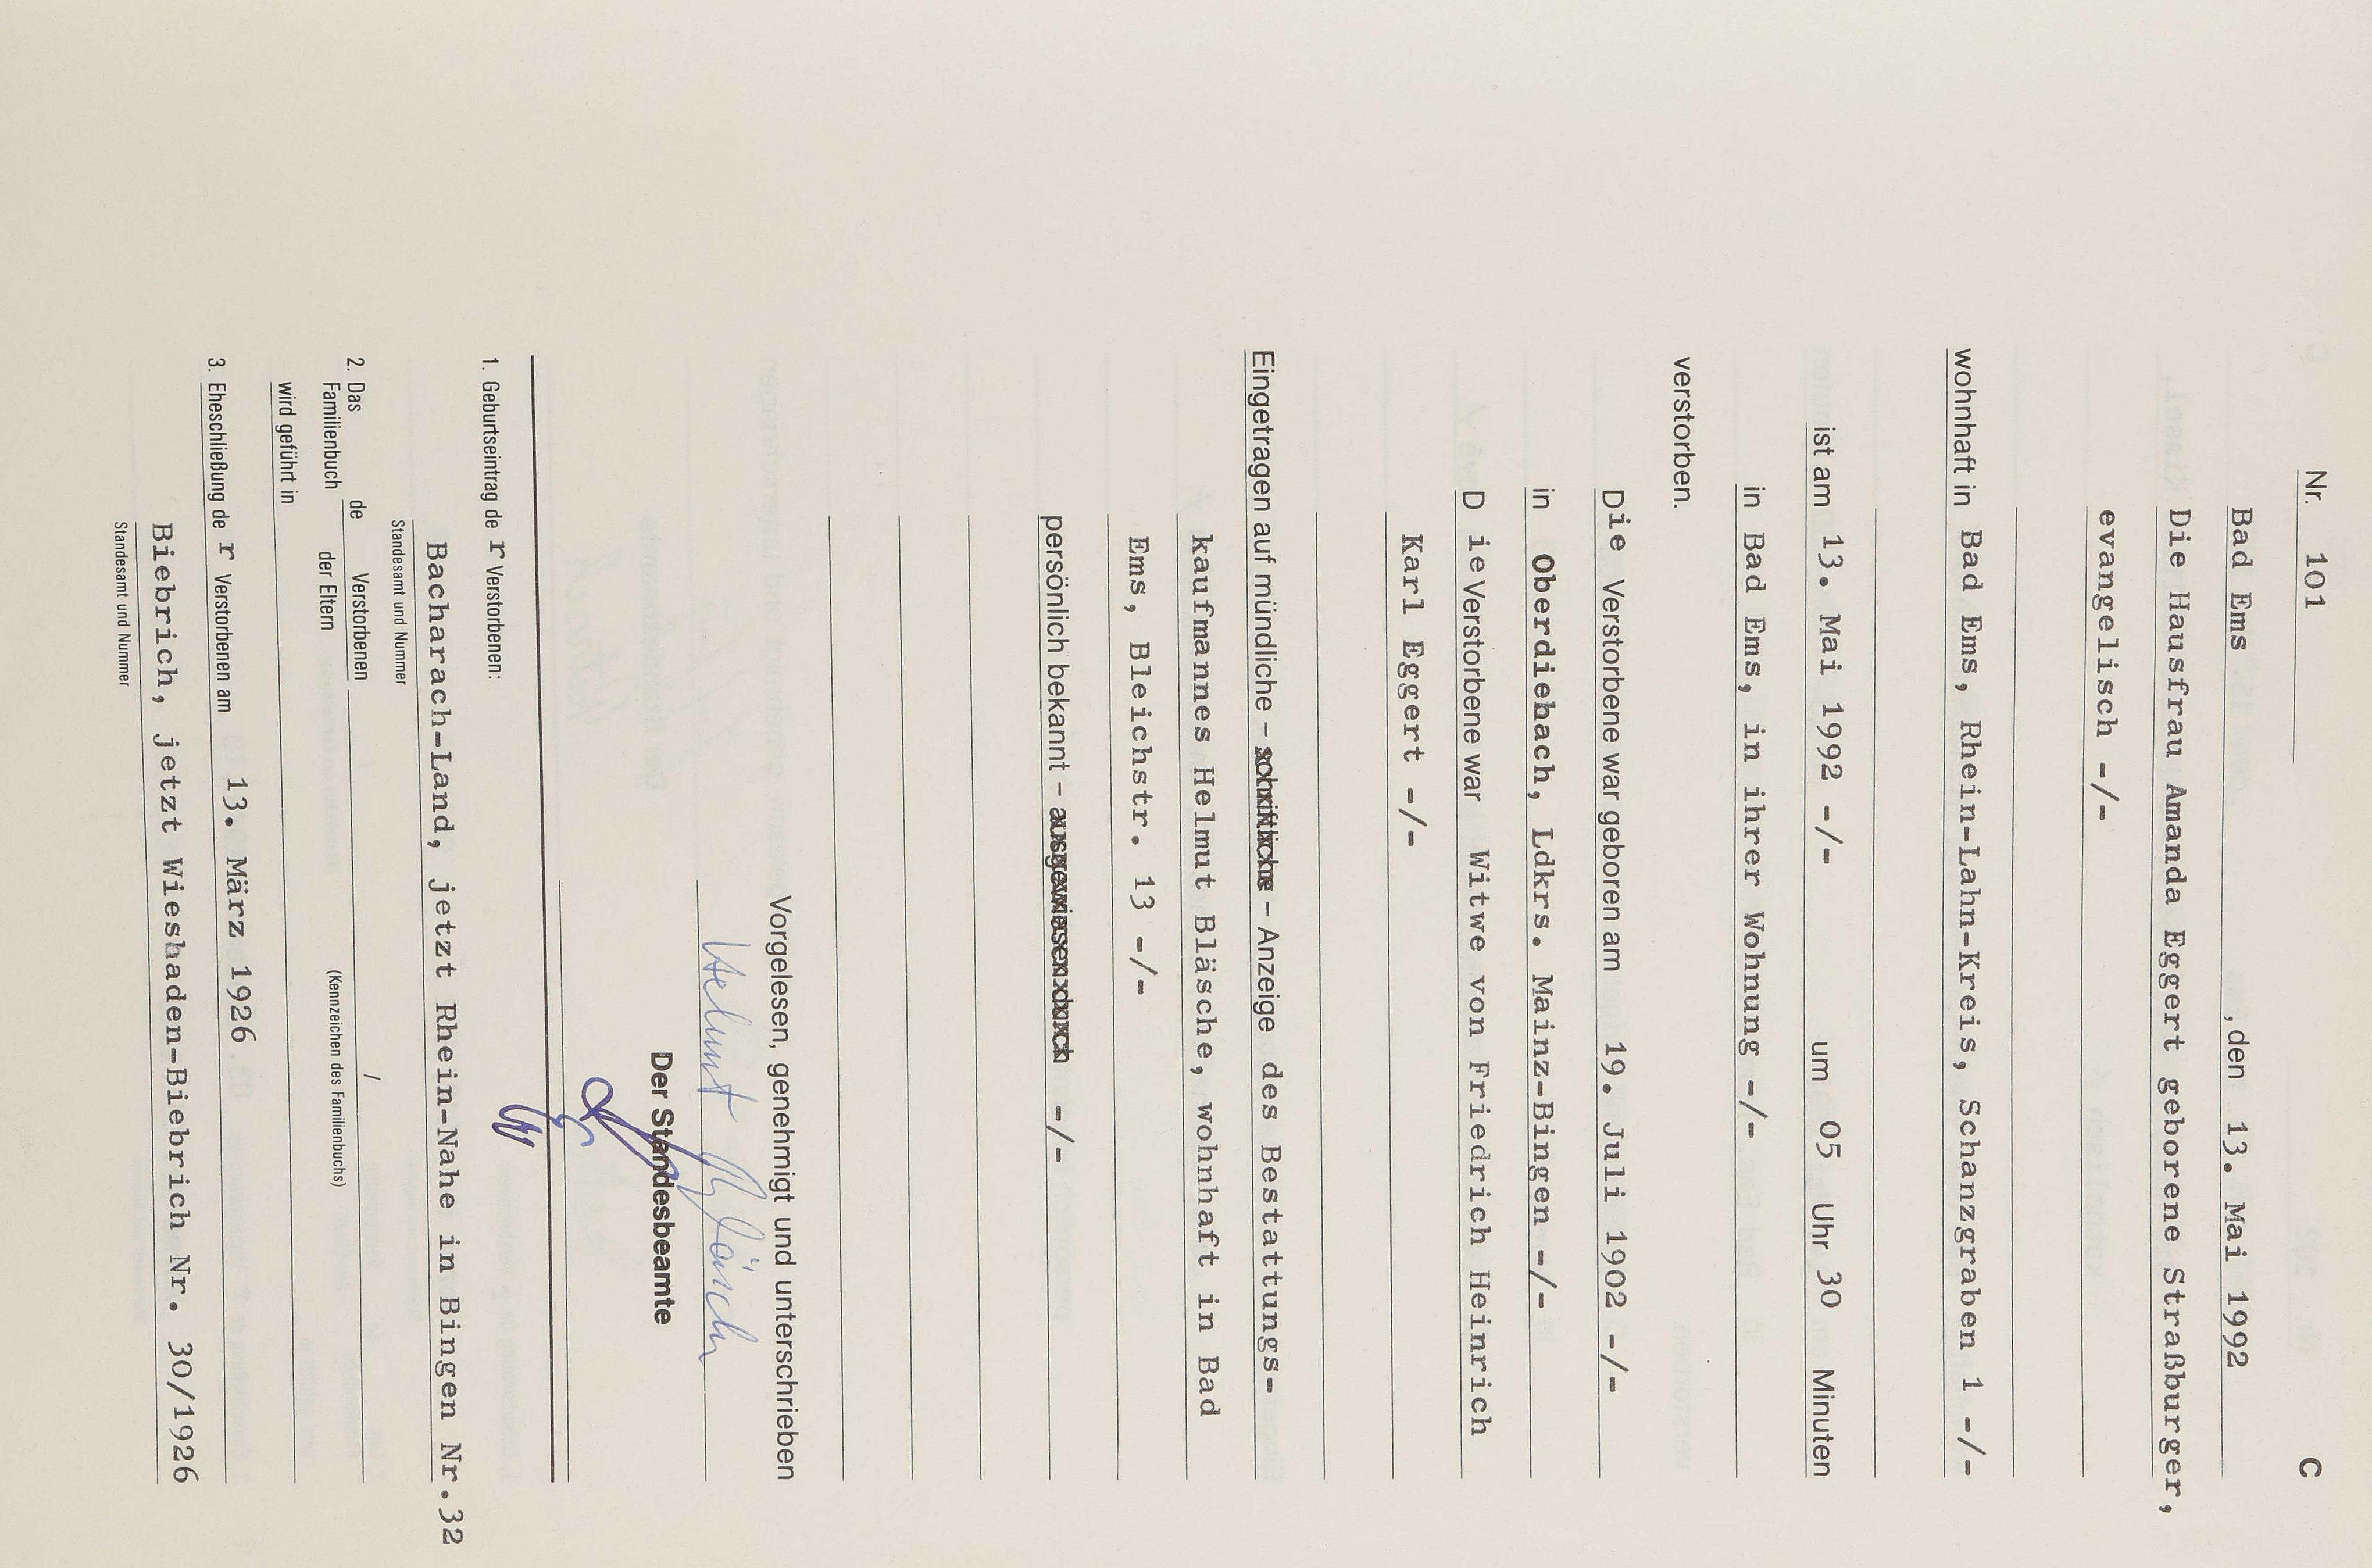 Nr. 101 C
Bad Ems , den 13. Mai 1992
Die Hausfrau Amanda Eggert geborene Straßburger,
evangelisch -/-
wohnhaft in Bad Ems, Rhein-Lahn-Kreis, Schanzgraben 1 -/-
ist am 13. Mai 1992 -/- um 05 Uhr 30 Minuten
in Bad Ems, in ihrer Wohnung -/-
verstorben.
Die Verstorbene war geboren am 19. Juli 1902 -/-
in Oberdiebach, Ldkrs. Mainz-Bingen -/-
Die Verstorbene war Witwe von Friedrich Heinrich
Karl Eggert -/-
Eingetragen auf mündliche – schriftliche – Anzeige des Bestattungs-
kaufmannes Helmut Bläsche, wohnhaft in Bad
Ems, Bleichstr. 13 -/-
persönlich bekannt – ausgewiesen durch -/-
Vorgelesen, genehmigt und unterschrieben
Helmut Bläsche
Der Standesbeamte
1. Geburtseintrag der Verstorbenen:
Bacharach-Land, jetzt Rhein-Nahe in Bingen Nr.32
Standesamt und Nummer
2. Das de Verstorbenen /
Familienbuch der Eltern (Kennzeichen des Familienbuchs)
wird geführt in
3. Eheschließung der Verstorbenen am 13. März 1926
Biebrich, jetzt Wiesbaden-Biebrich Nr. 30/1926
Standesamt und Nummer